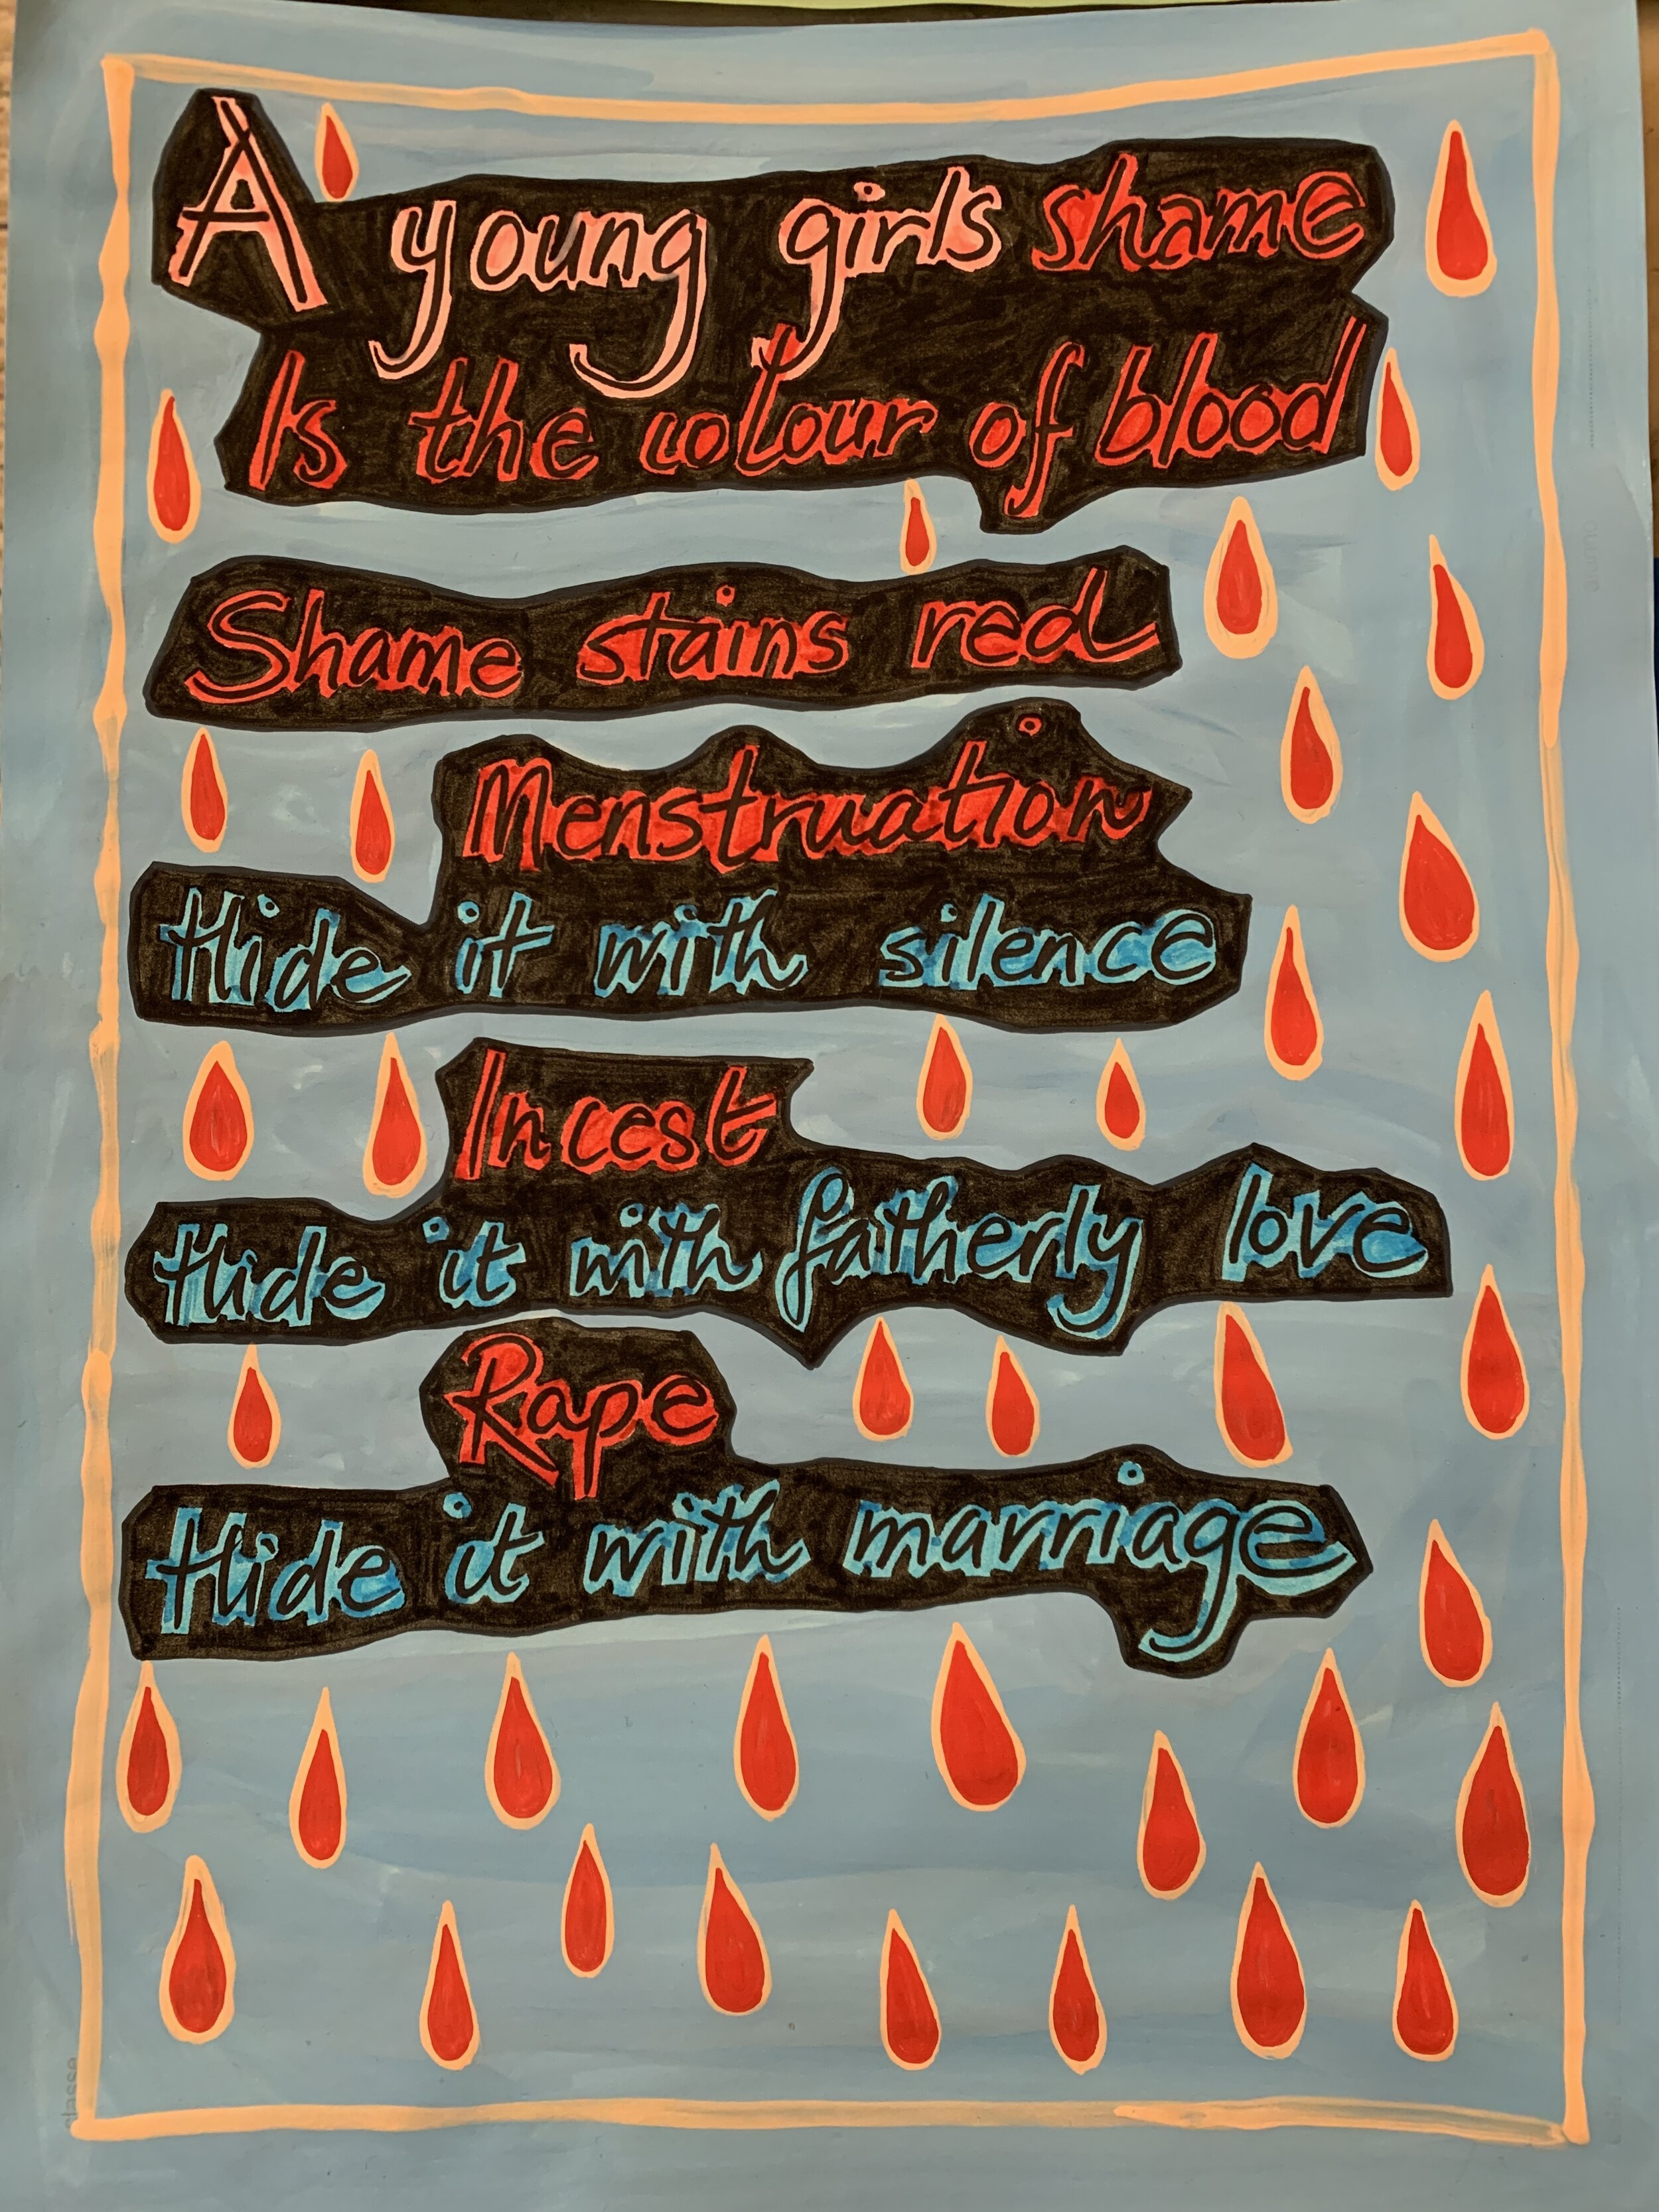 A young girls shame
Is the colour of blood
Shame stains red
Menstruation
Hide it with silence
Incest
Hide it with fatherly love
Rape
Hide it with marriage